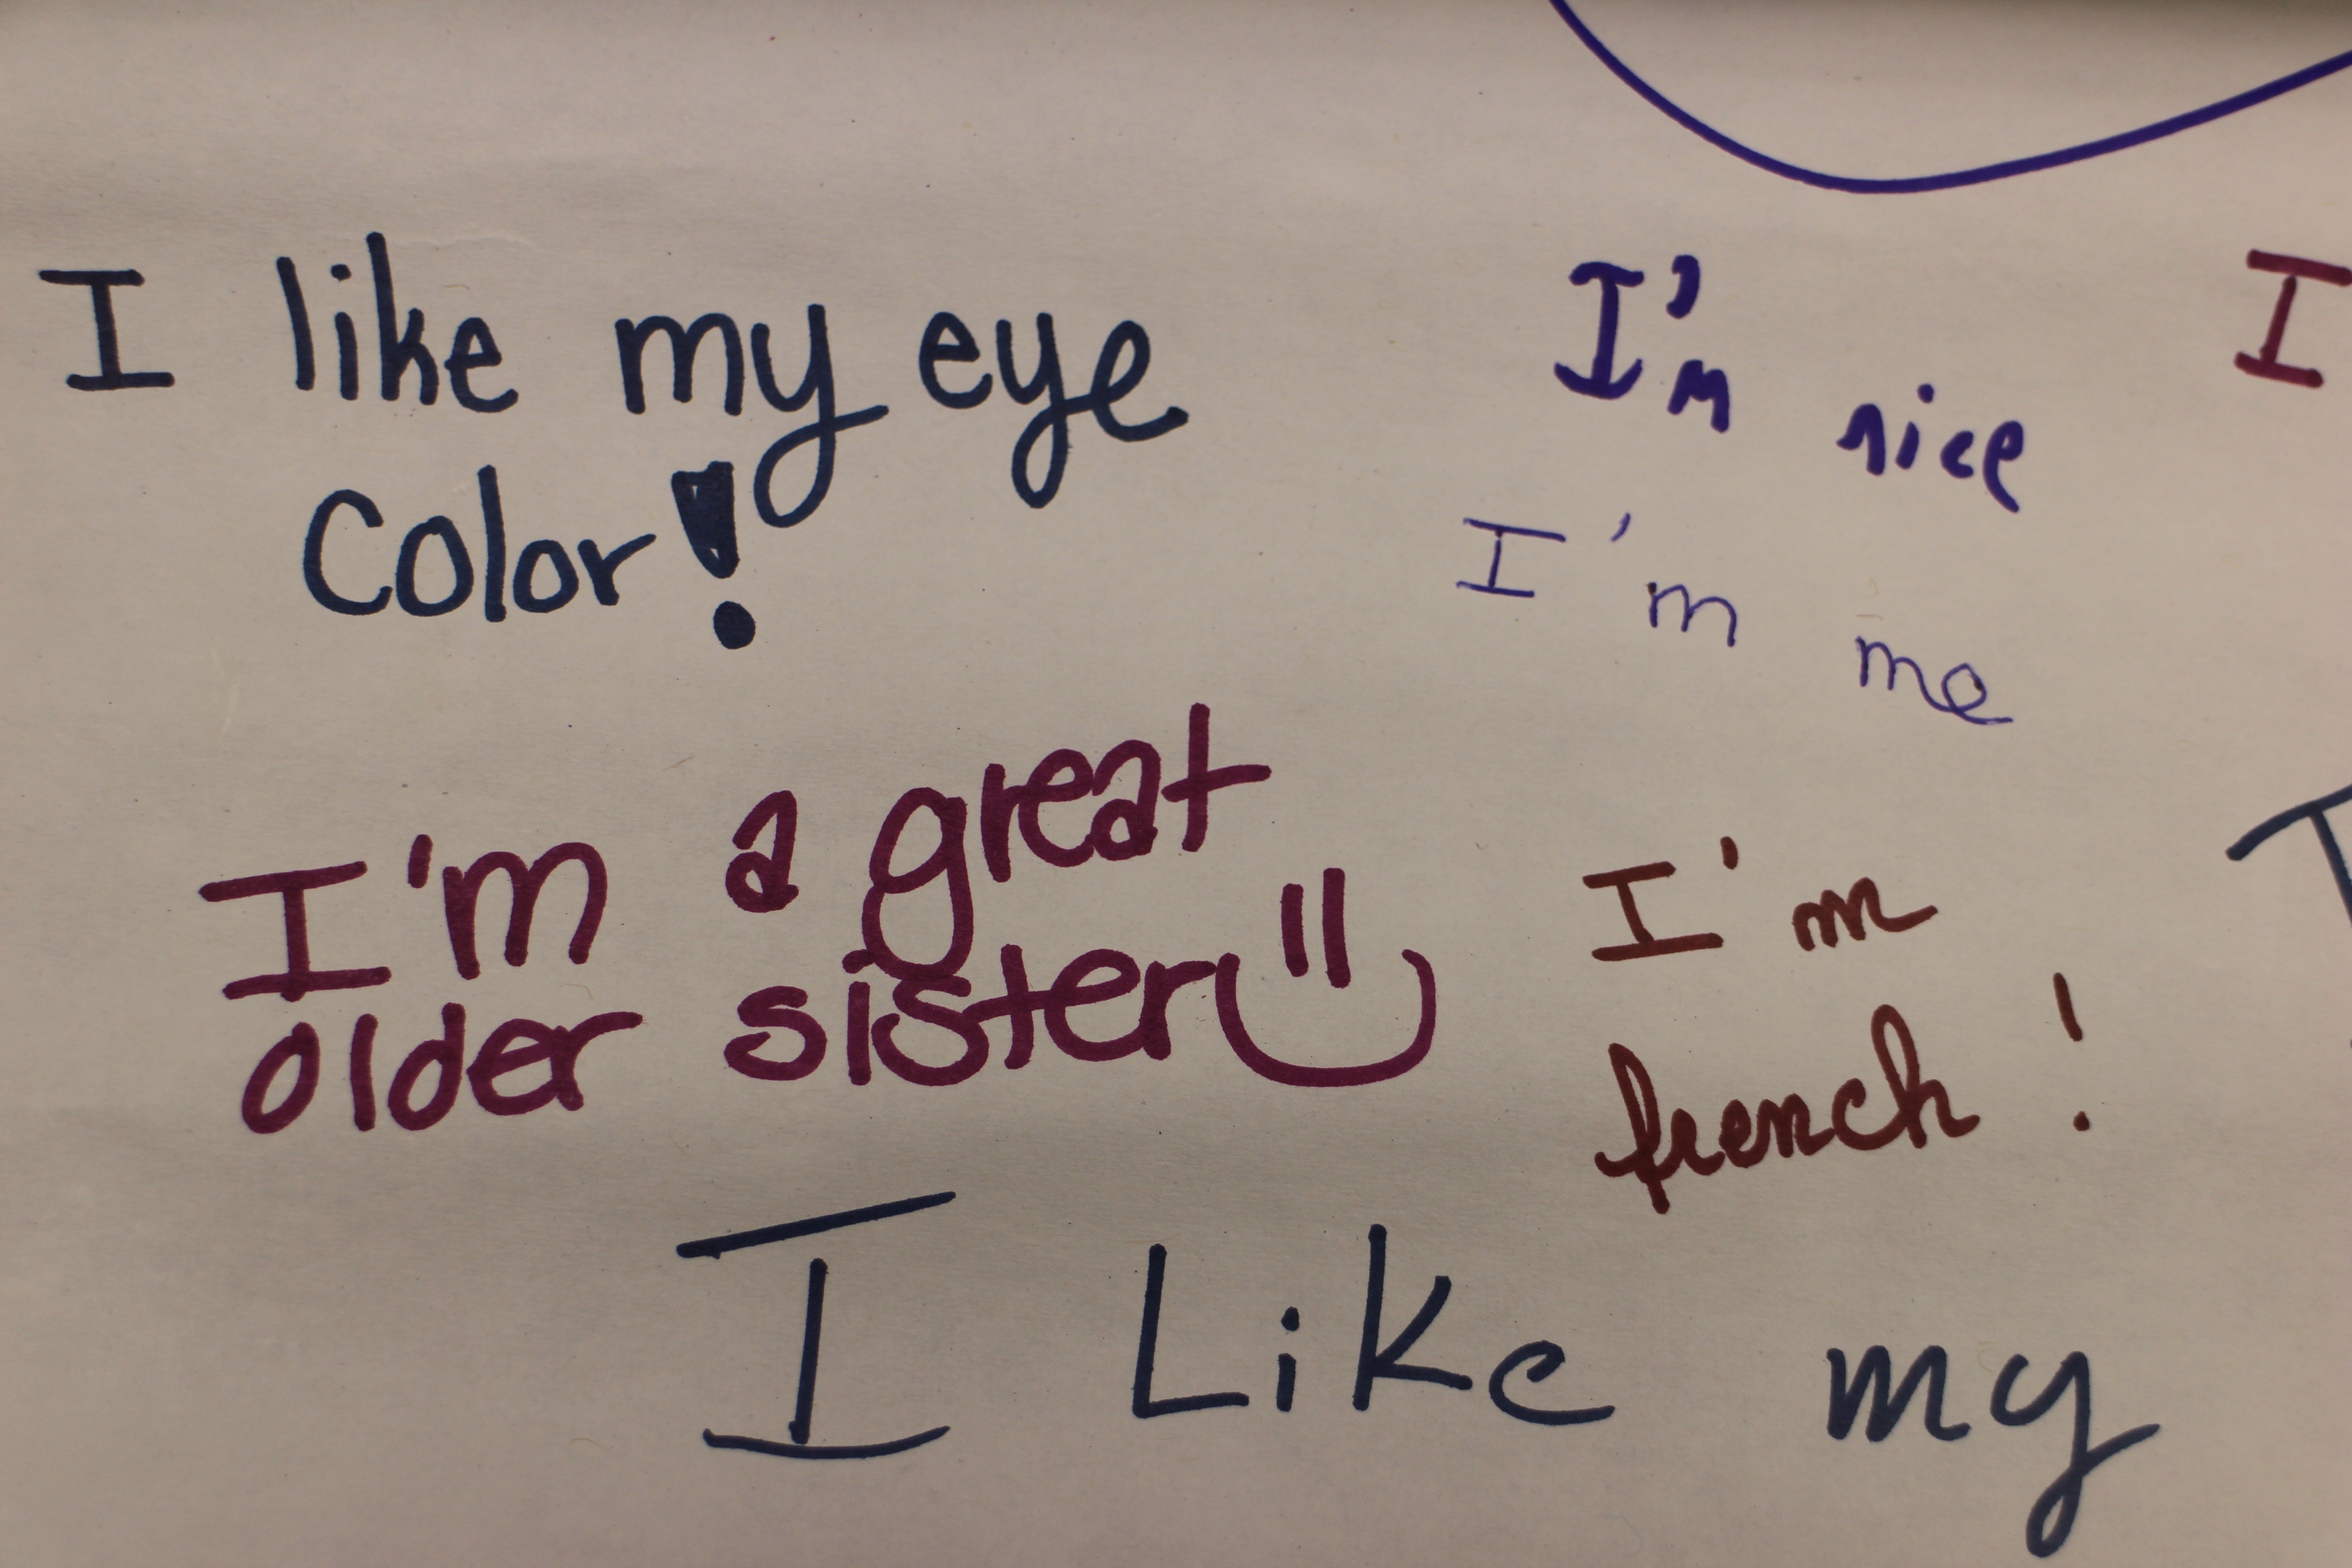 I like my eye
Color!
I'm nice
I
I'm me
I'm a great
older sister
I'm
french!
I Like my